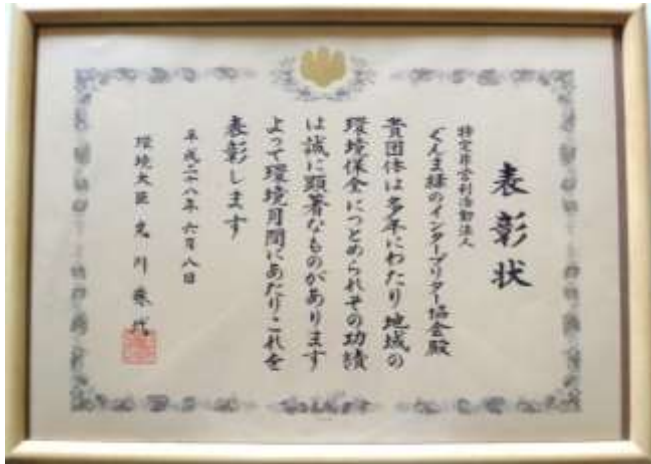 表彰状
特定非営利活動法人
ぐんま緑のインタープリター協会殿
貴団体は多年にわたり地域の
環境保全につとめられその功績
は誠に顕著なものがあります
よって環境月間にあたりこれを
表彰します
平成二十八年六月八日
環境大臣 丸川珠代